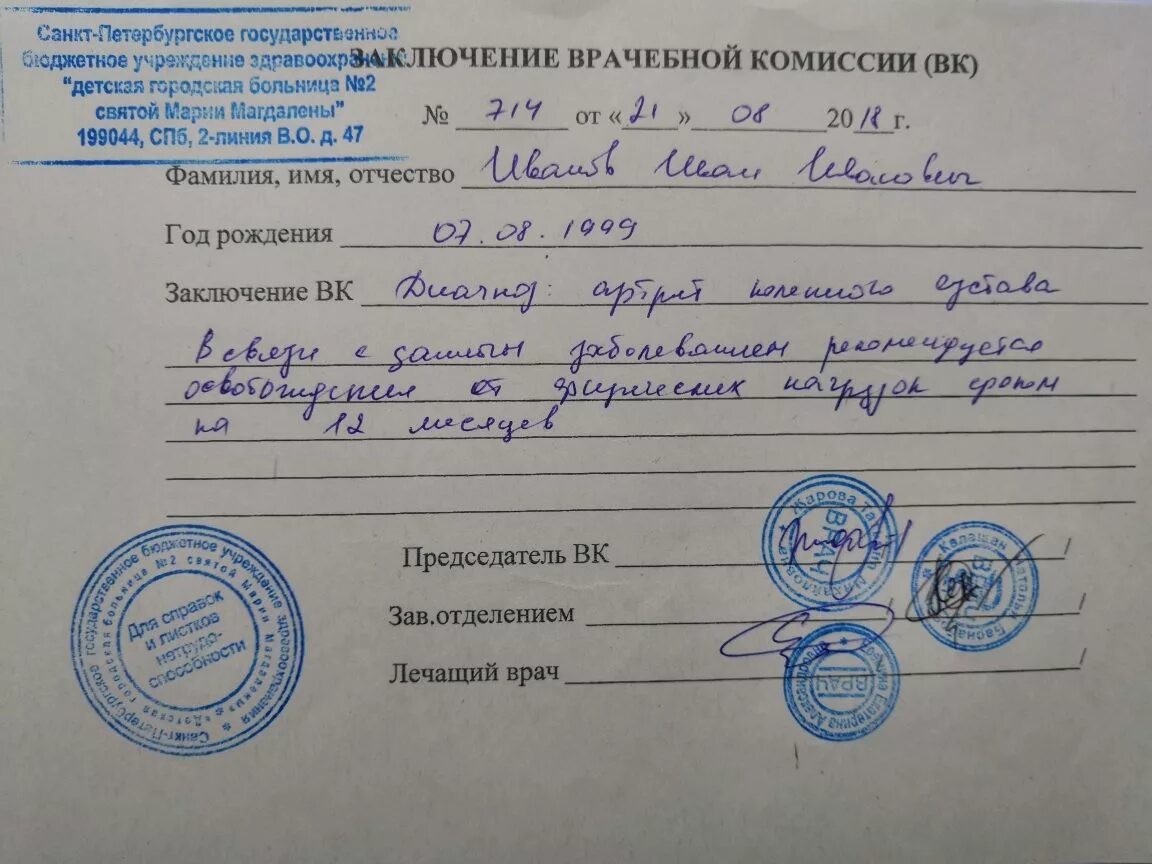 Санкт-Петербургское государственное
бюджетное учреждение здравоохранения
"детская городская больница №2
святой Марии Магдалены"
199044, СПб, 2-линия В.О. д. 47
ЗАКЛЮЧЕНИЕ ВРАЧЕБНОЙ КОМИССИИ (ВК)
№ 714 от «21» 08 2018 г.
Фамилия, имя, отчество Иванов Иван Иванович
Год рождения 07.08.1999
Заключение ВК Диагноз: артрит коленного сустава
В связи с данным заболеванием рекомендуется
освобождение от физических нагрузок сроком
на 12 месяцев
Председатель ВК
Жарова Михайловна
ВРАЧ
Зав.отделением
Калашян
Лечащий врач
Екатерина Александровна
ВРАЧ
Санкт-Петербургское государственное бюджетное учреждение здравоохранения
«Детская городская больница №2 святой Марии Магдалены»
Для справок
и листков
нетрудо-
способности